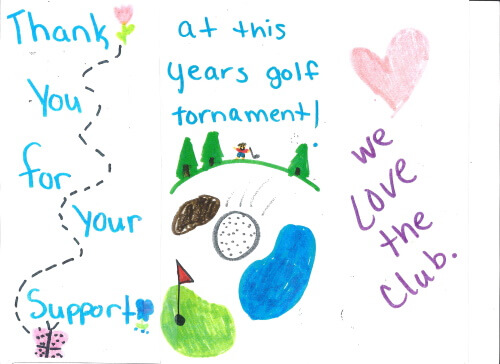 Thank
You
for
your
Support
at this
years golf
tornament!
we
Love
the
Club.